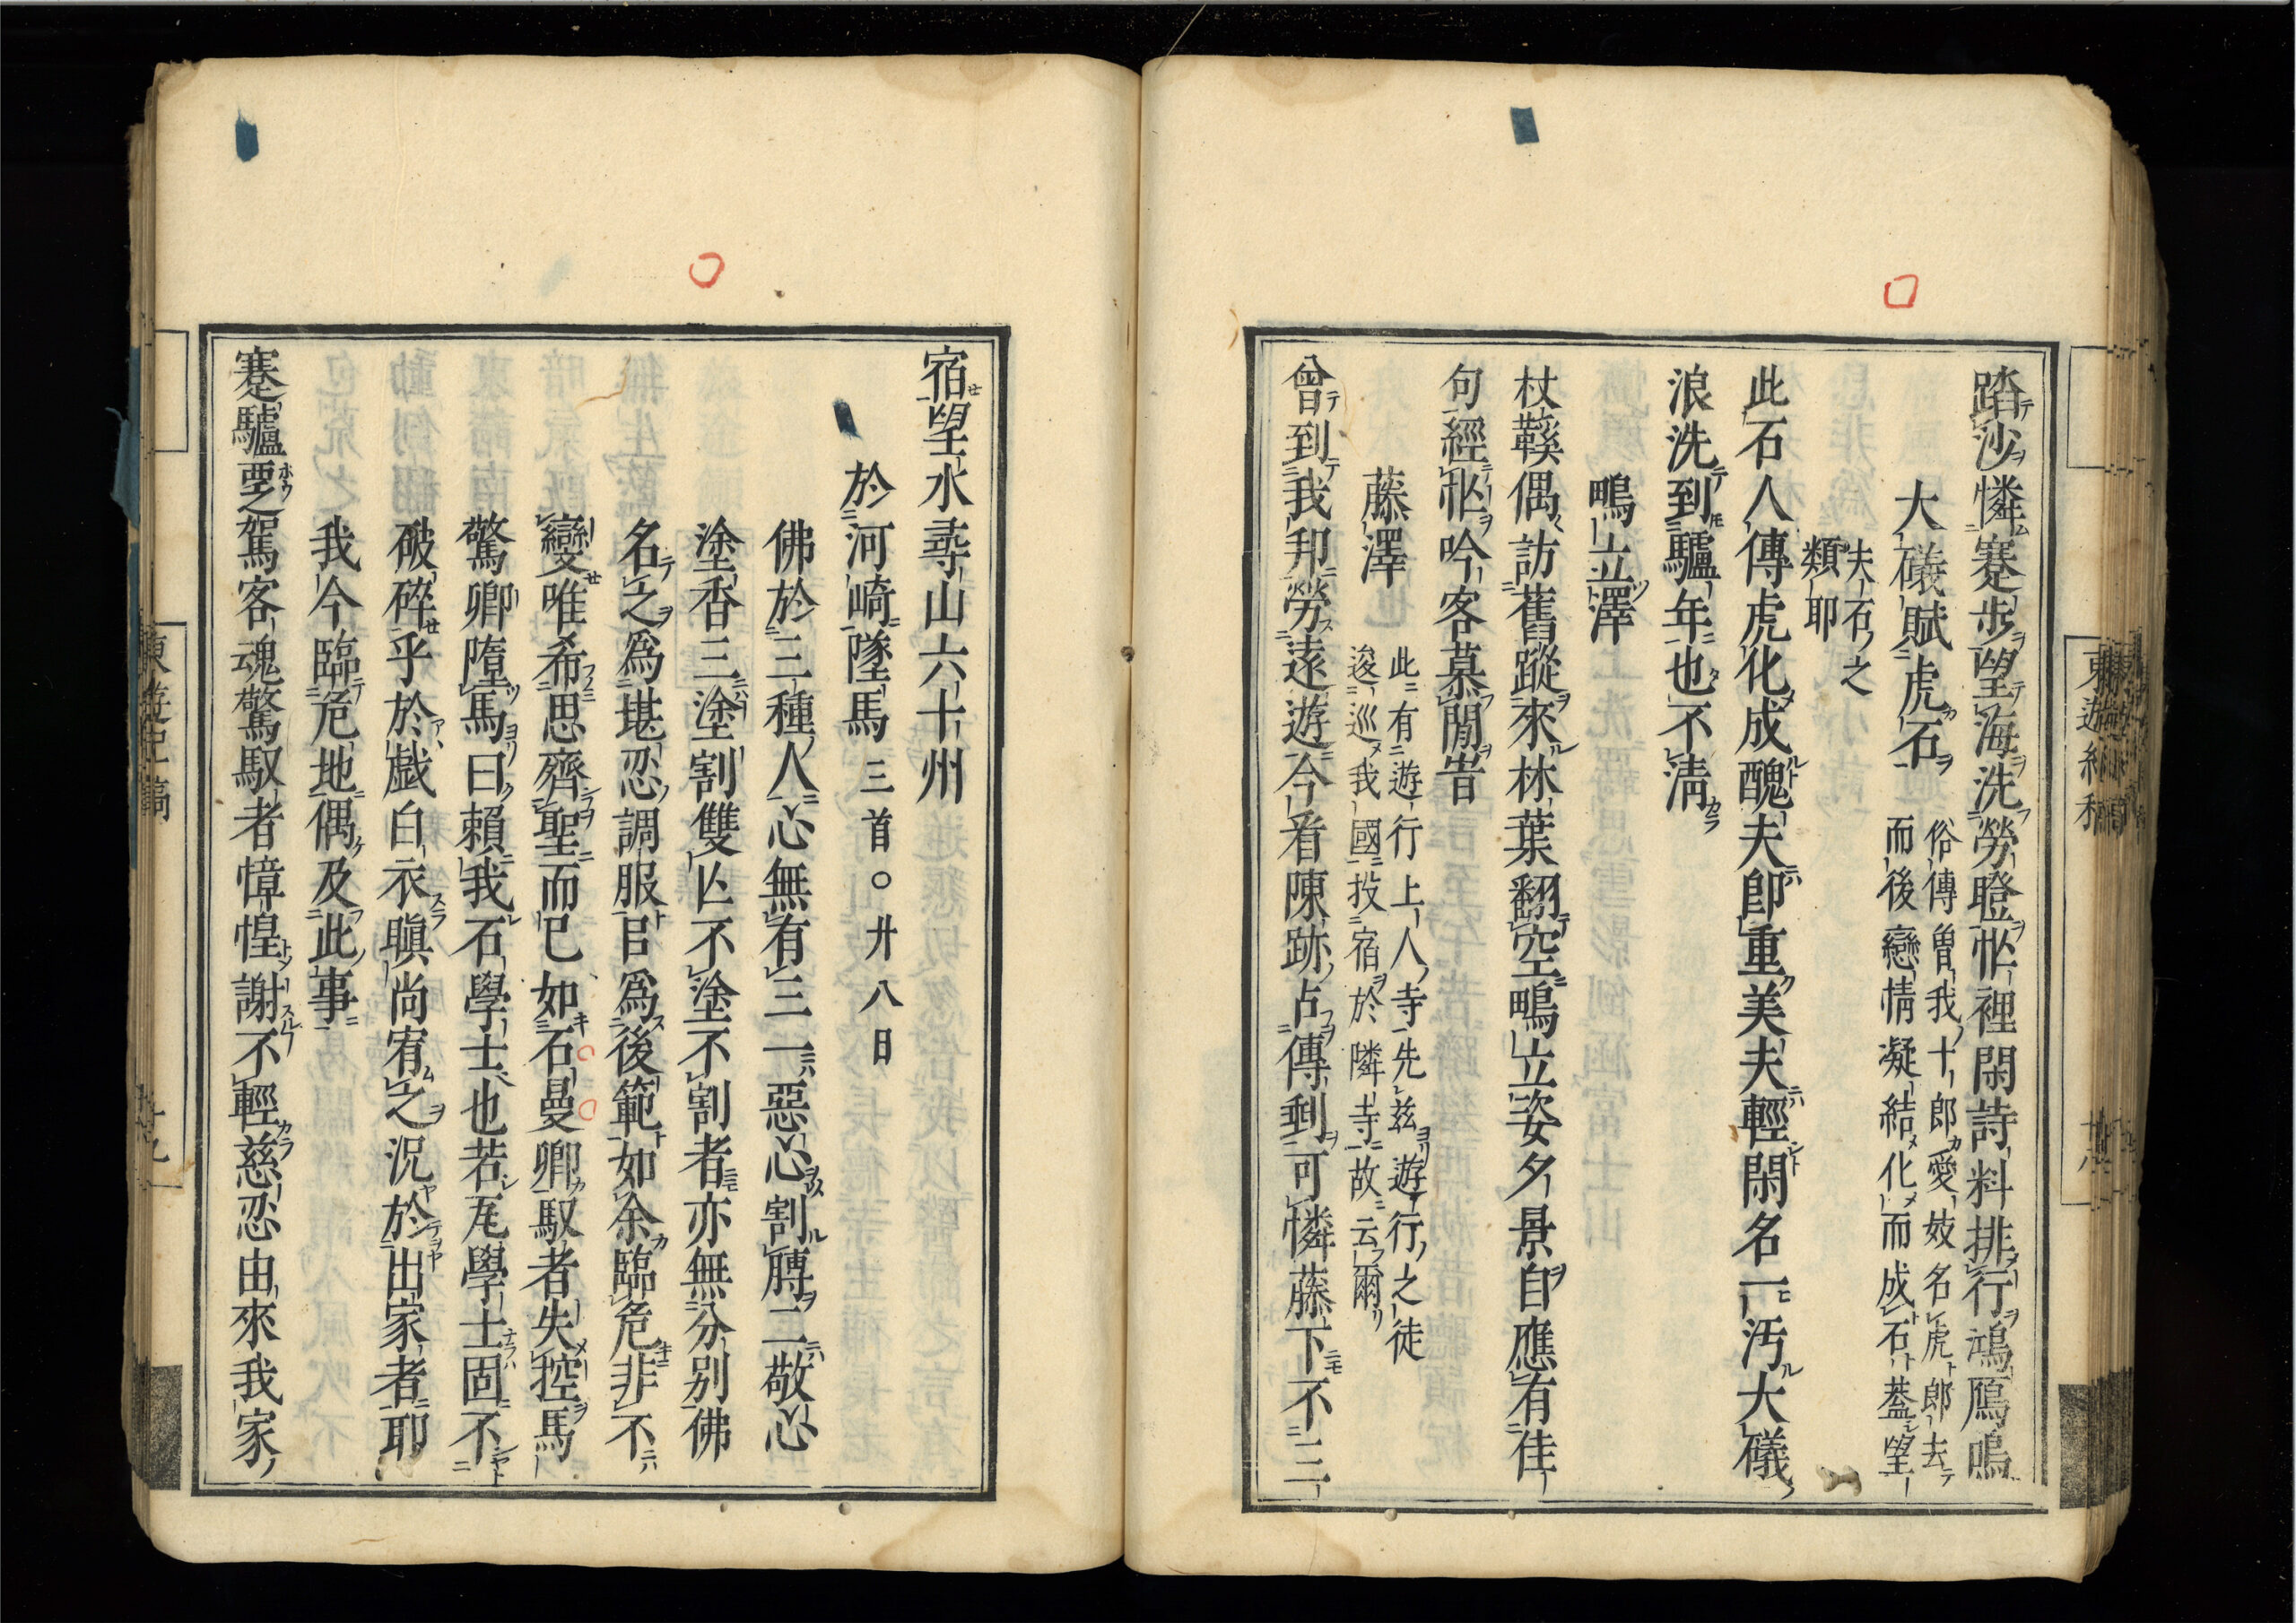 踏沙憐蹇步望海洗勞瞪恠裡閑詩料排行鴻鴈鳴
大礒賦虎石
俗傳曽我十郎愛妓名虎郎去
而後戀情凝結化而成石葢望
夫石之
類耶
此石人傳虎化成醜夫卽重美夫輕閑名一汚大礒
浪洗到驢年也不淸
鴫立澤
杖鞵偶訪舊蹤來林葉翻空鴫立姿夕景自應有佳
句經恠吟客慕閒呰
藤澤
此有遊行上人寺先兹遊行之徒
逡巡我國投宿於隣寺故云爾
曾到我邦勞遠遊今看陳跡占傳郵可憐藤下不三
宿望水尋山六十州
於河崎墜馬三首○廾八日
佛於二種人心無有三一惡心割膞二敬心
塗香三塗割雙亾不塗不割者亦無分別佛
名之爲堪忍調服㠯爲後範如余臨危非不
變唯希思齊聖而已如石曼卿馭者失控馬
驚卿隋馬曰賴我石學士也若瓦學士固不
破碎乎於戯白衣瞋尚宥之況於出家者耶
我今臨危地偶及此事
蹇驢覂駕客魂驚馭者慞惶謝不輕慈忍由來我家
東遊紀稿
東遊紀稿